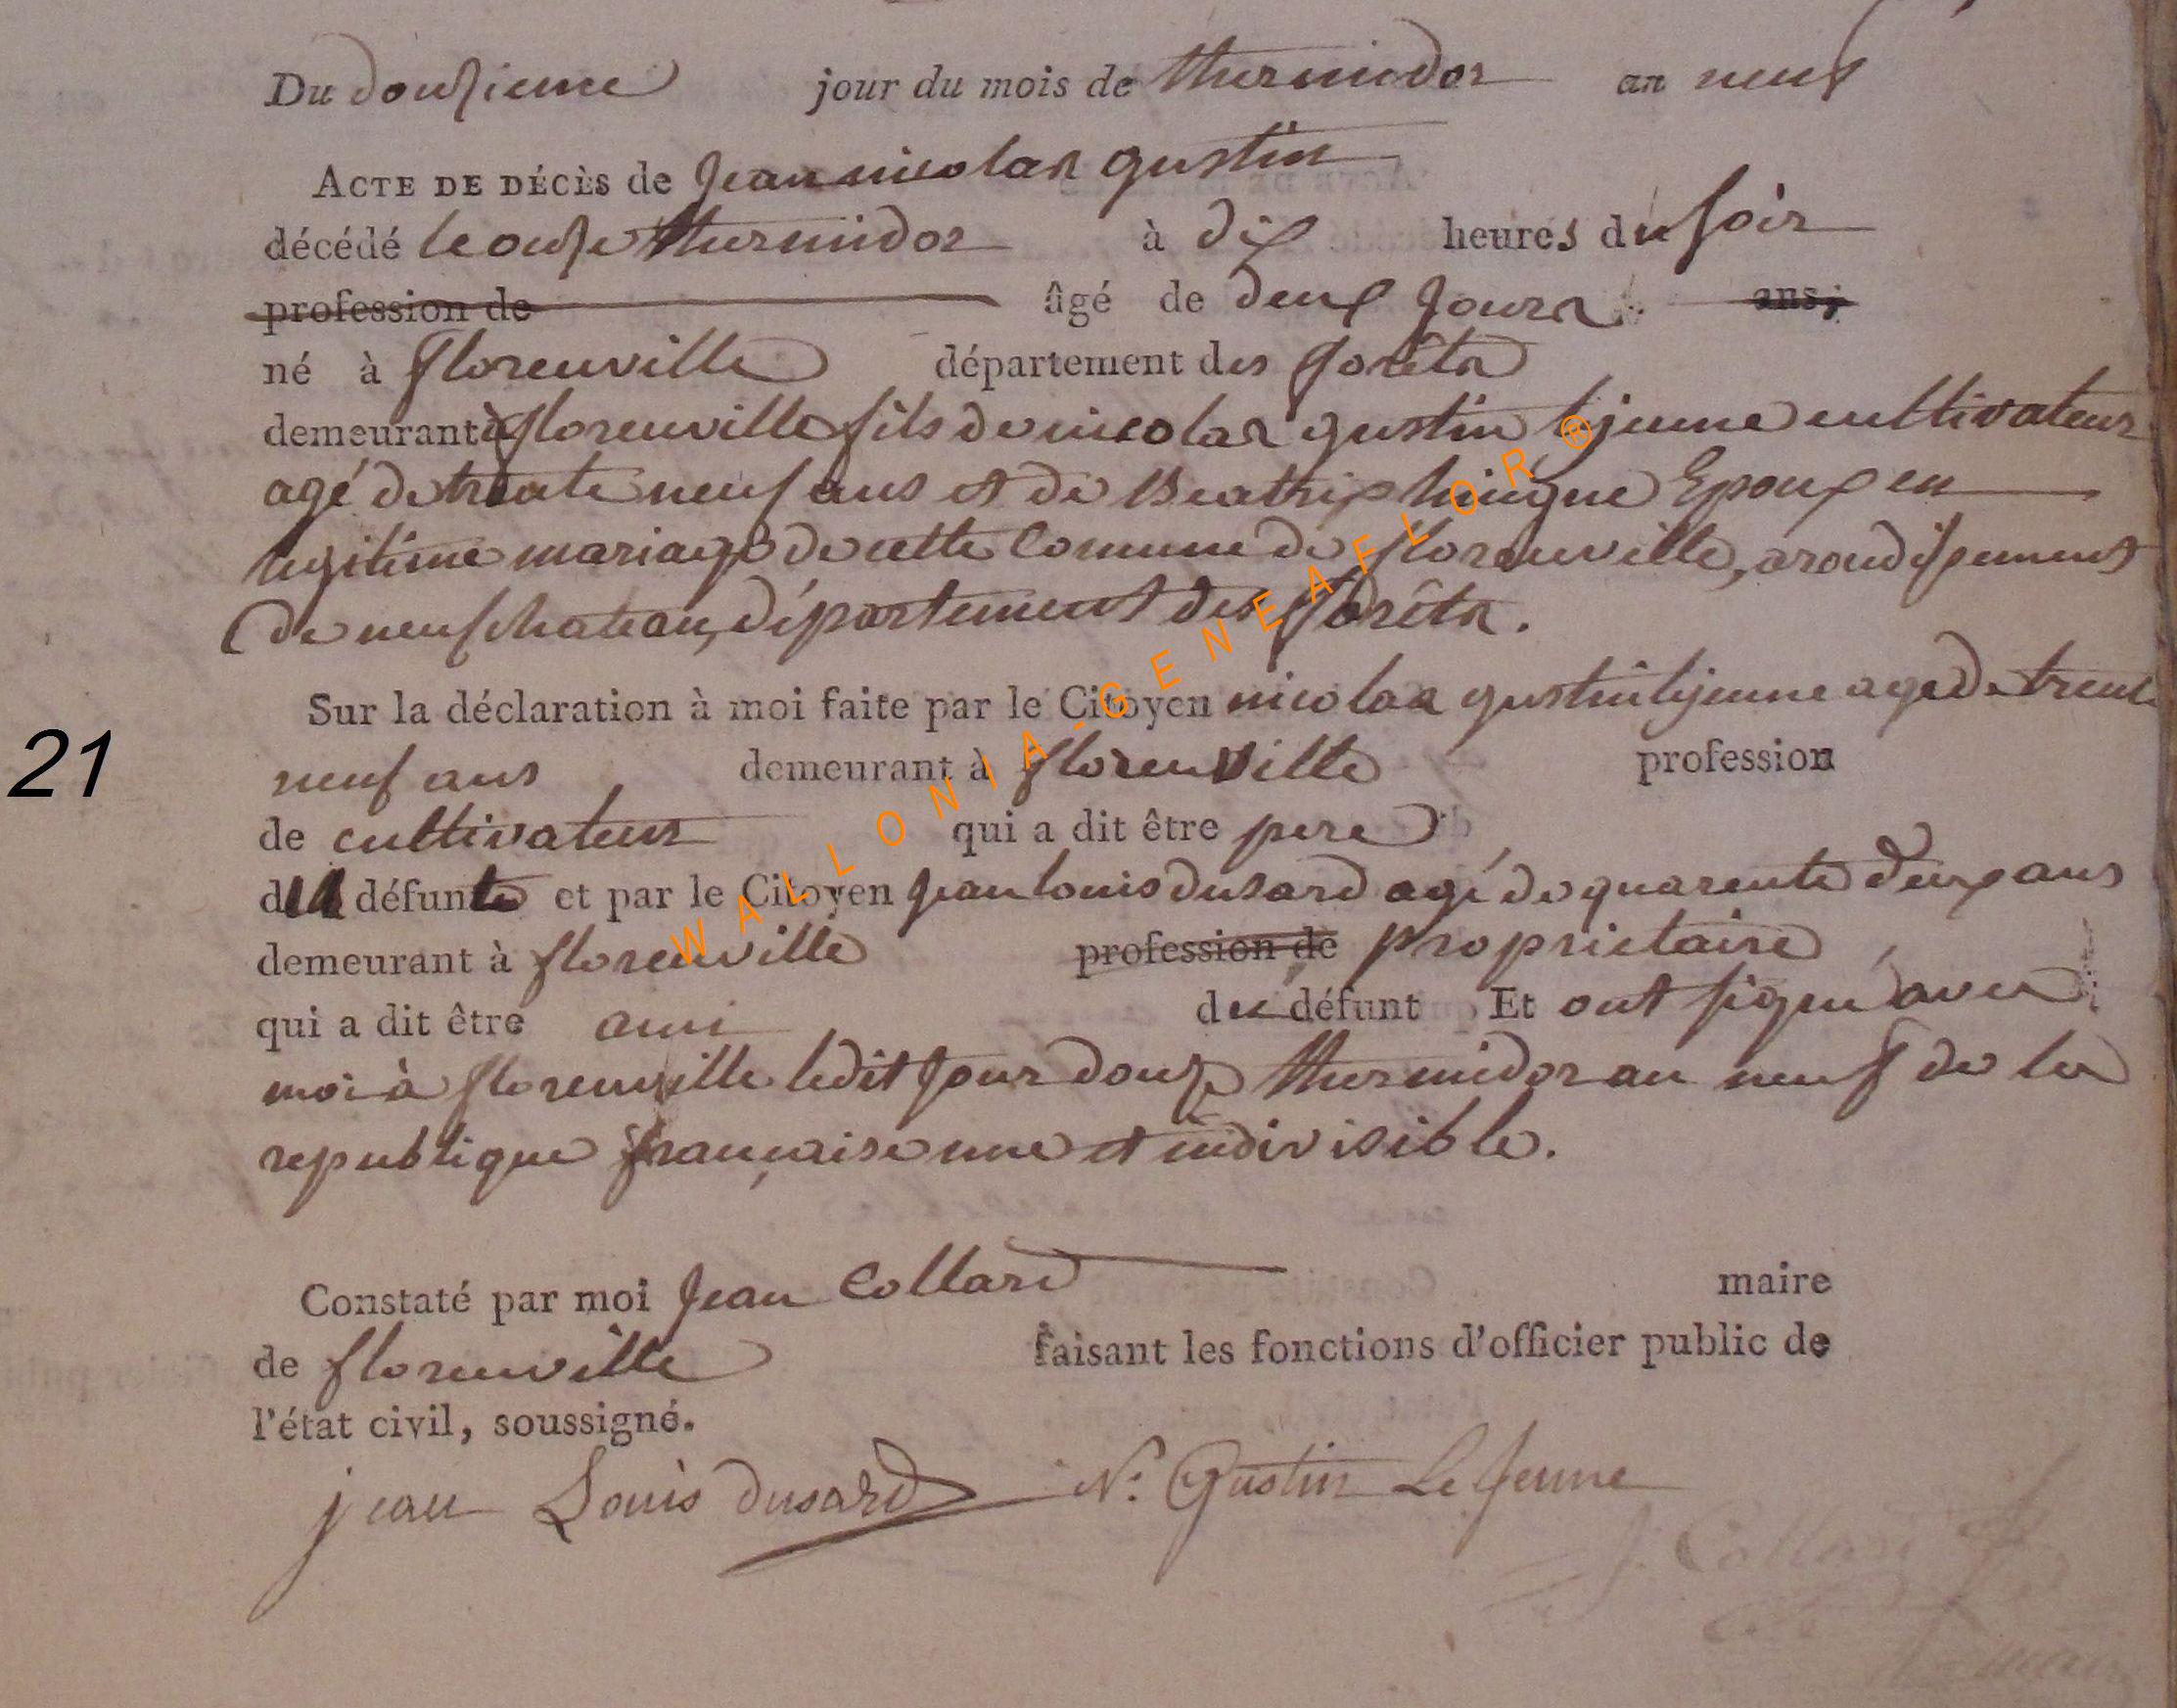 Du douzieme jour du mois de thermidor an neuf
ACTE DE DÉCÈS de Jean nicolas gustin
décédé le onze thermidor à dix heures du soir
profession de âgé de deux jours ans;
né à florenville département des forêts
demeurant à florenville fils de nicolas gustin lejeune cultivateur
agé de trente neuf ans et de Beatrix hingue Epoux en
legitime mariage de cette Comune de florenville, arondissement
de neufchateau, département des forêts.
Sur la déclaration à moi faite par le Citoyen nicolas gustin lejeune agé de trente
21
neuf ans demeurant à florenville profession
de cultivateur qui a dit être pere
du défunt et par le Citoyen jean louis dusard agé de quarente deux ans
demeurant à florenville profession de proprietaire
qui a dit être ami du défunt Et ont signé avec
moi à florenville ledit jour douze thermidor an neuf de la
republique française une et indivisible.
Constaté par moi Jean Collard maire
de florenville faisant les fonctions d'officier public de
l'état civil, soussigné.
jean Louis dusard N. Gustin Le Jeune
J. Collard
WALLONIA-GENEAFLOR®